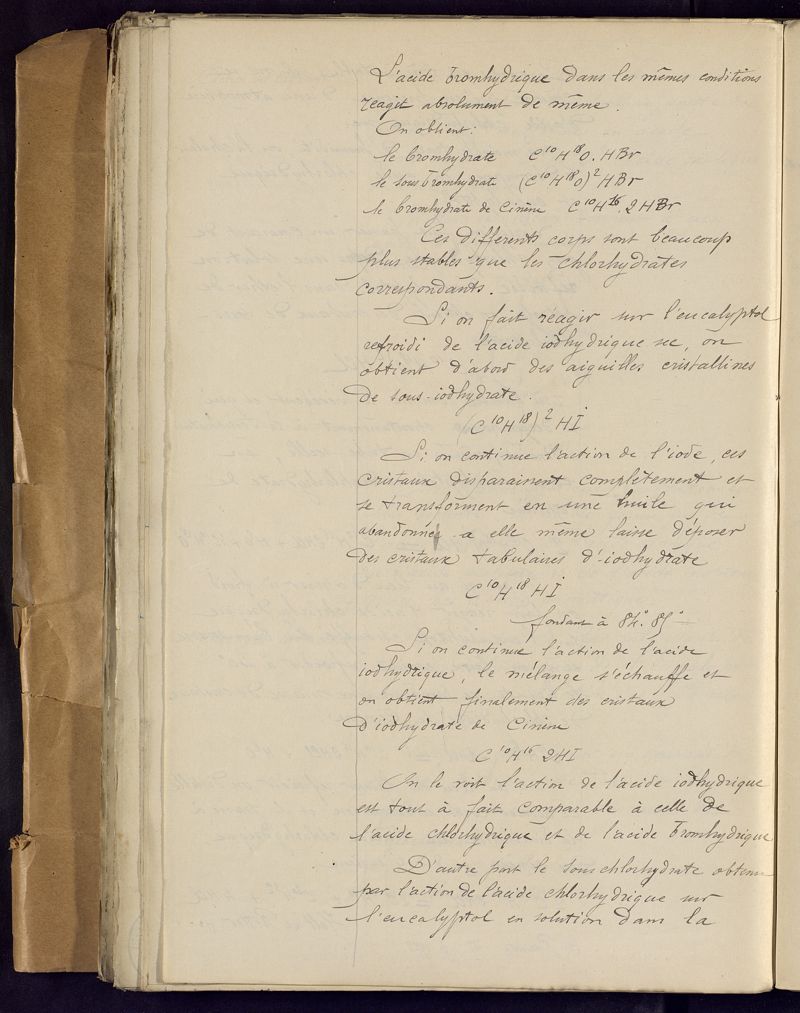 L'acide bromhydrique dans les mêmes conditions
réagit absolument de même.
On obtient:
le bromhydrate C¹⁰H¹⁸O.HBr
le sous bromhydrate (C¹⁰H¹⁸O)²HBr
le bromhydrate de Cinène C¹⁰H¹⁶.2HBr
Ces différents corps sont beaucoup
plus stables que les chlorhydrates
correspondants.
Si on fait réagir sur l'eucalyptol
refroidi de l'acide iodhydrique sec, on
obtient d'abord des aiguilles cristallines
de sous-iodhydrate.
(C¹⁰H¹⁸)²HI
Si on continue l'action de l'iode, ces
cristaux disparaissent complètement et
se transforment en une huile qui
abandonnée a elle même laisse déposer
des cristaux tabulaires d'iodhydrate
C¹⁰H¹⁸HI
fondant à 84°.85°
Si on continue l'action de l'acide
iodhydrique, le mélange s'échauffe et
on obtient finalement des cristaux
d'iodhydrate de Cinène
C¹⁰H¹⁶2HI
On le voit l'action de l'acide iodhydrique
est tout à fait comparable à celle de
l'acide chlorhydrique et de l'acide bromhydrique
D'autre part le sous chlorhydrate obtenu
par l'action de l'acide chlorhydrique sur
l'eucalyptol en solution dans la